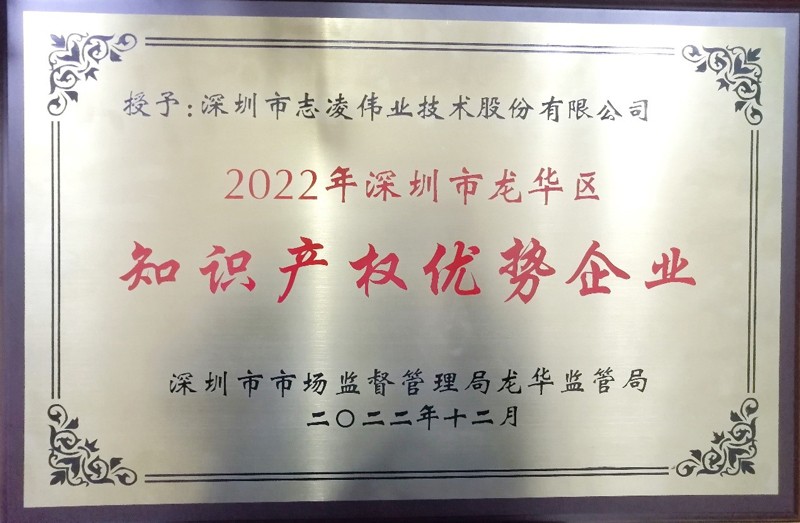 授予:深圳市志凌伟业技术股份有限公司
2022年深圳市龙华区
知识产权优势企业
深圳市市场监督管理局龙华监管局
二〇二二年十二月